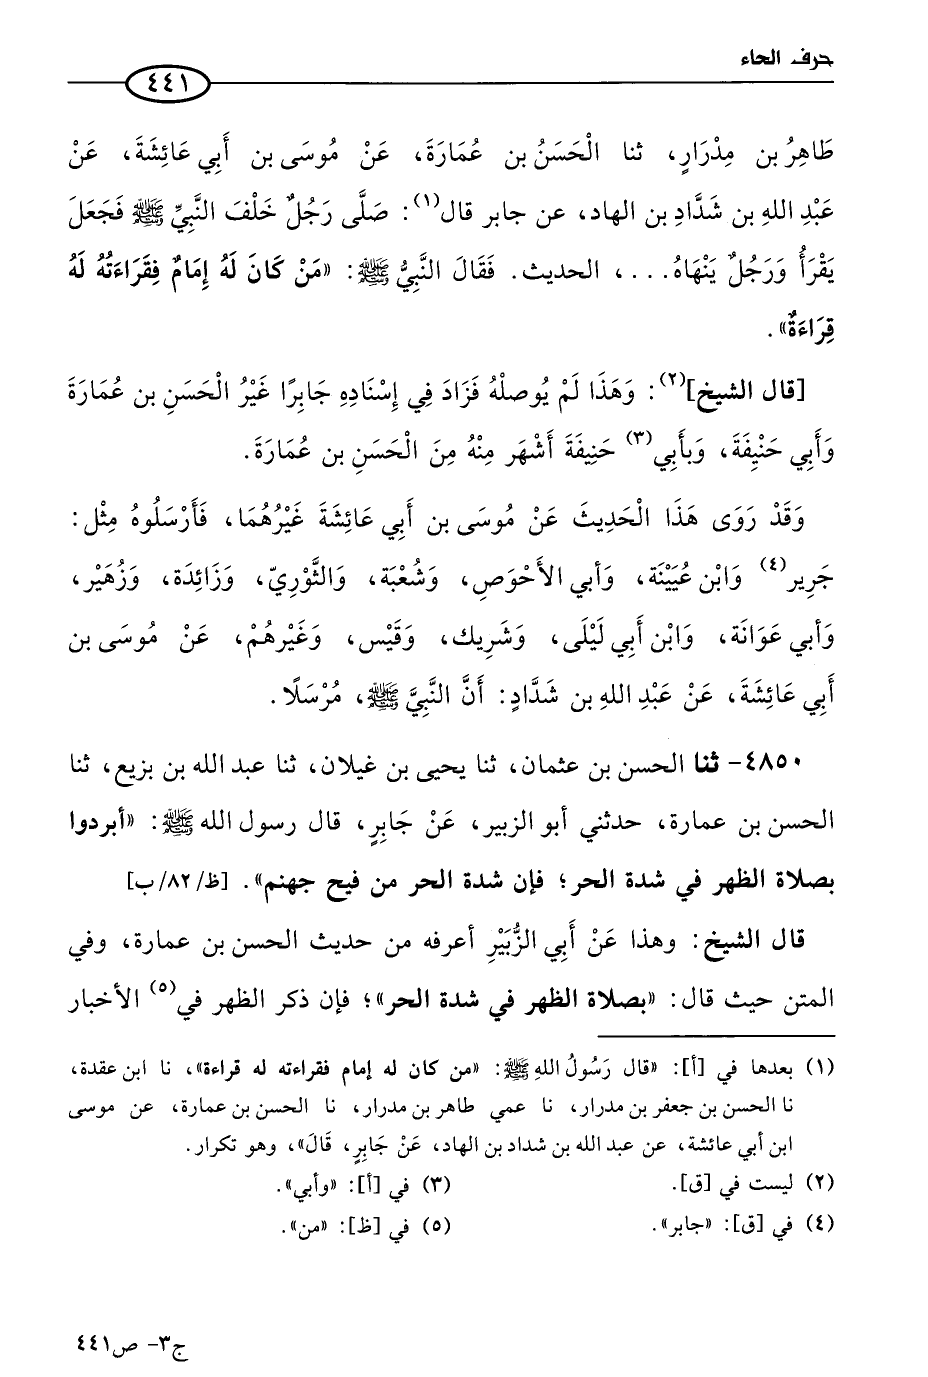 حرف الحاء
٤٤١
طَاهِرُ بن مِدْرَارٍ، ثنا الْحَسَنُ بن عُمَارَةَ، عَنْ مُوسَى بن أَبِي عَائِشَةَ، عَنْ
عَبْدِ اللهِ بن شَدَّادِ بن الهاد، عن جابر قال(١): صَلَّى رَجُلٌ خَلْفَ النَّبِيِّ ﷺ فَجَعَلَ
يَقْرَأُ وَرَجُلٌ يَنْهَاهُ....، الحديث. فَقَالَ النَّبِيُّ ﷺ: «مَنْ كَانَ لَهُ إِمَامٌ فِقَرَاءَتُهُ لَهُ
قِرَاءَةٌ».
[قال الشيخ](٢): وَهَذَا لَمْ يُوصلْهُ فَزَادَ فِي إِسْنَادِهِ جَابِرًا غَيْرُ الْحَسَنِ بن عُمَارَةَ
وَأَبِي حَنْيِفَةَ، وَبأَبِي(٣) حَنِيفَةَ أَشْهَر مِنْهُ مِنَ الْحَسَنِ بن عُمَارَةَ.
وَقَدْ رَوَى هَذَا الْحَدِيثَ عَنْ مُوسَى بن أَبي عَائِشَةَ غَيْرُهُمَا، فَأَرْسَلُوهُ مِثْل:
جَرِير(٤) وَابْن عُيَيْنَة، وَأبي الأَحْوَصِ، وَشُعْبَة، وَالثَّوْرِيّ، وَزَائِدَة، وَزُهَيْر،
وَأبي عَوَانَة، وَابْن أَبِي لَيْلَى، وَشَرِيك، وَقَيْس، وَغَيْرِهُمْ، عَنْ مُوسَى بن
أَبِي عَائِشَةَ، عَنْ عَبْدِ اللهِ بن شَدَّادٍ: أَنَّ النَّبِيَّ ﷺ، مُرْسَلًا.
٤٨٥٠- ثنا الحسن بن عثمان، ثنا يحيى بن غيلان، ثنا عبد الله بن بزيع، ثنا
الحسن بن عمارة، حدثني أبو الزبير، عَنْ جَابِرٍ، قال رسول الله ﷺ: «أبردوا
بصلاة الظهر في شدة الحر؛ فإن شدة الحر من فيح جهنم». [ظ/٨٢/ب]
قال الشيخ: وهذا عَنْ أَبِي الزُّبَيْرِ أعرفه من حديث الحسن بن عمارة، وفي
المتن حيث قال: «بصلاة الظهر في شدة الحر»؛ فإن ذكر الظهر في(٥) الأخبار
(١) بعدها في [أ]: «قال رَسُولُ اللهِ ﷺ: «من كان له إمام فقراءته له قراءة»، نا ابن عقدة،
نا الحسن بن جعفر بن مدرار، نا عمي طاهر بن مدرار، نا الحسن بن عمارة، عن موسى
ابن أبي عائشة، عن عبد الله بن شداد بن الهاد، عَنْ جَابِرٍ، قَالَ»، وهو تكرار.
(٢) ليست في [ق].
(٣) في [أ]: «وأبي».
(٤) في [ق]: «جابر».
(٥) في [ظ]: «من».
ج٣- ص٤٤١